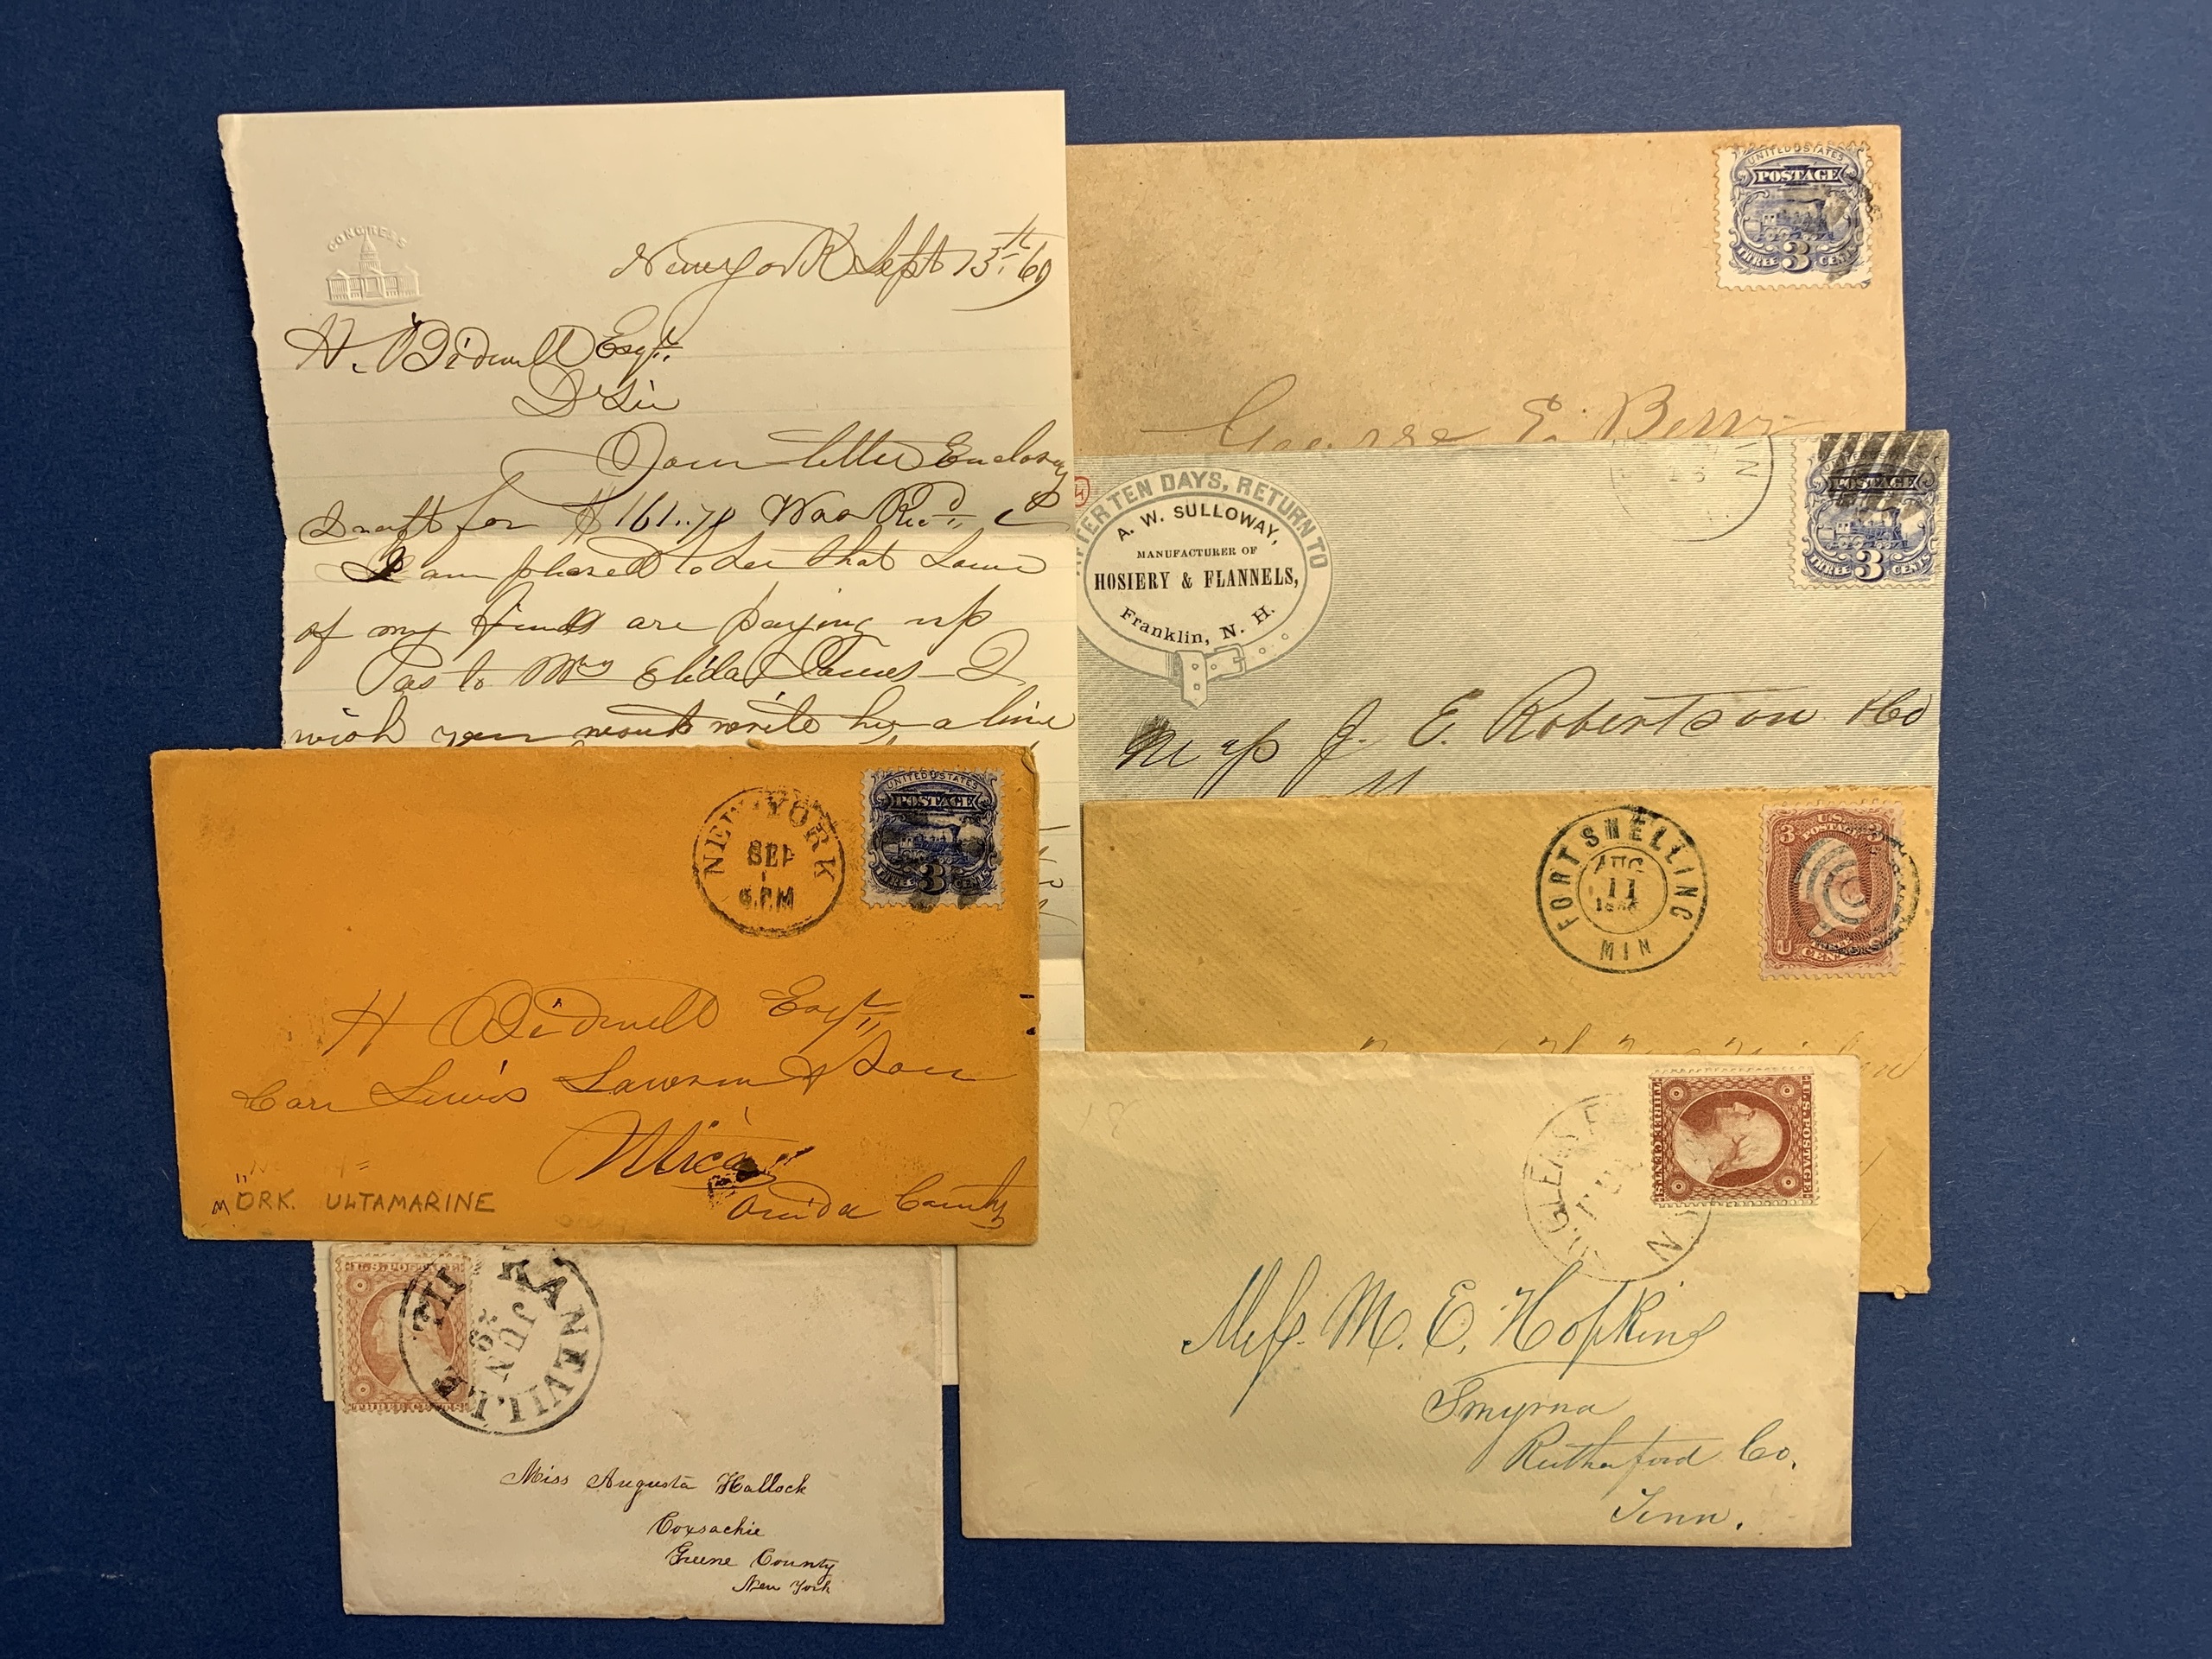 CONGRESS
New York Sept 13th 69
H. Bidwell Esqr.
Dr Sir
Your letter Enclosing
draft for $161..70 Was Recd.
I am pleased to see that Some
of my funds are paying up
as to Mrs Elida James I
wish you would write her a line
UNITED STATES
POSTAGE
THREE 3 CENTS
George E. Berry
AFTER TEN DAYS, RETURN TO
A. W. SULLOWAY,
MANUFACTURER OF
HOSIERY & FLANNELS,
Franklin, N. H.
POSTAGE
THREE 3 CENTS
J. E. Robertson &Co
NEW YORK
SEP
6 PM
UNITED STATES
POSTAGE
THREE 3 CENTS
H Bidwell Esqr
Care Lewis Lawson & Son
Utica
Oneida County
ORK. ULTAMARINE
FORT SNELLING
AUG
11
MIN
3 U.S. 3
POSTAGE
U CENTS
U.S. POSTAGE
THREE CENTS
Miss. M. E. Hopkins
Smyrna
Rutherford Co.
Tenn.
U.S. POSTAGE
THREE CENTS
KANEVILLE ILL
JUN
29
Miss Augusta Hallock
Coxsachie
Greene County
New York